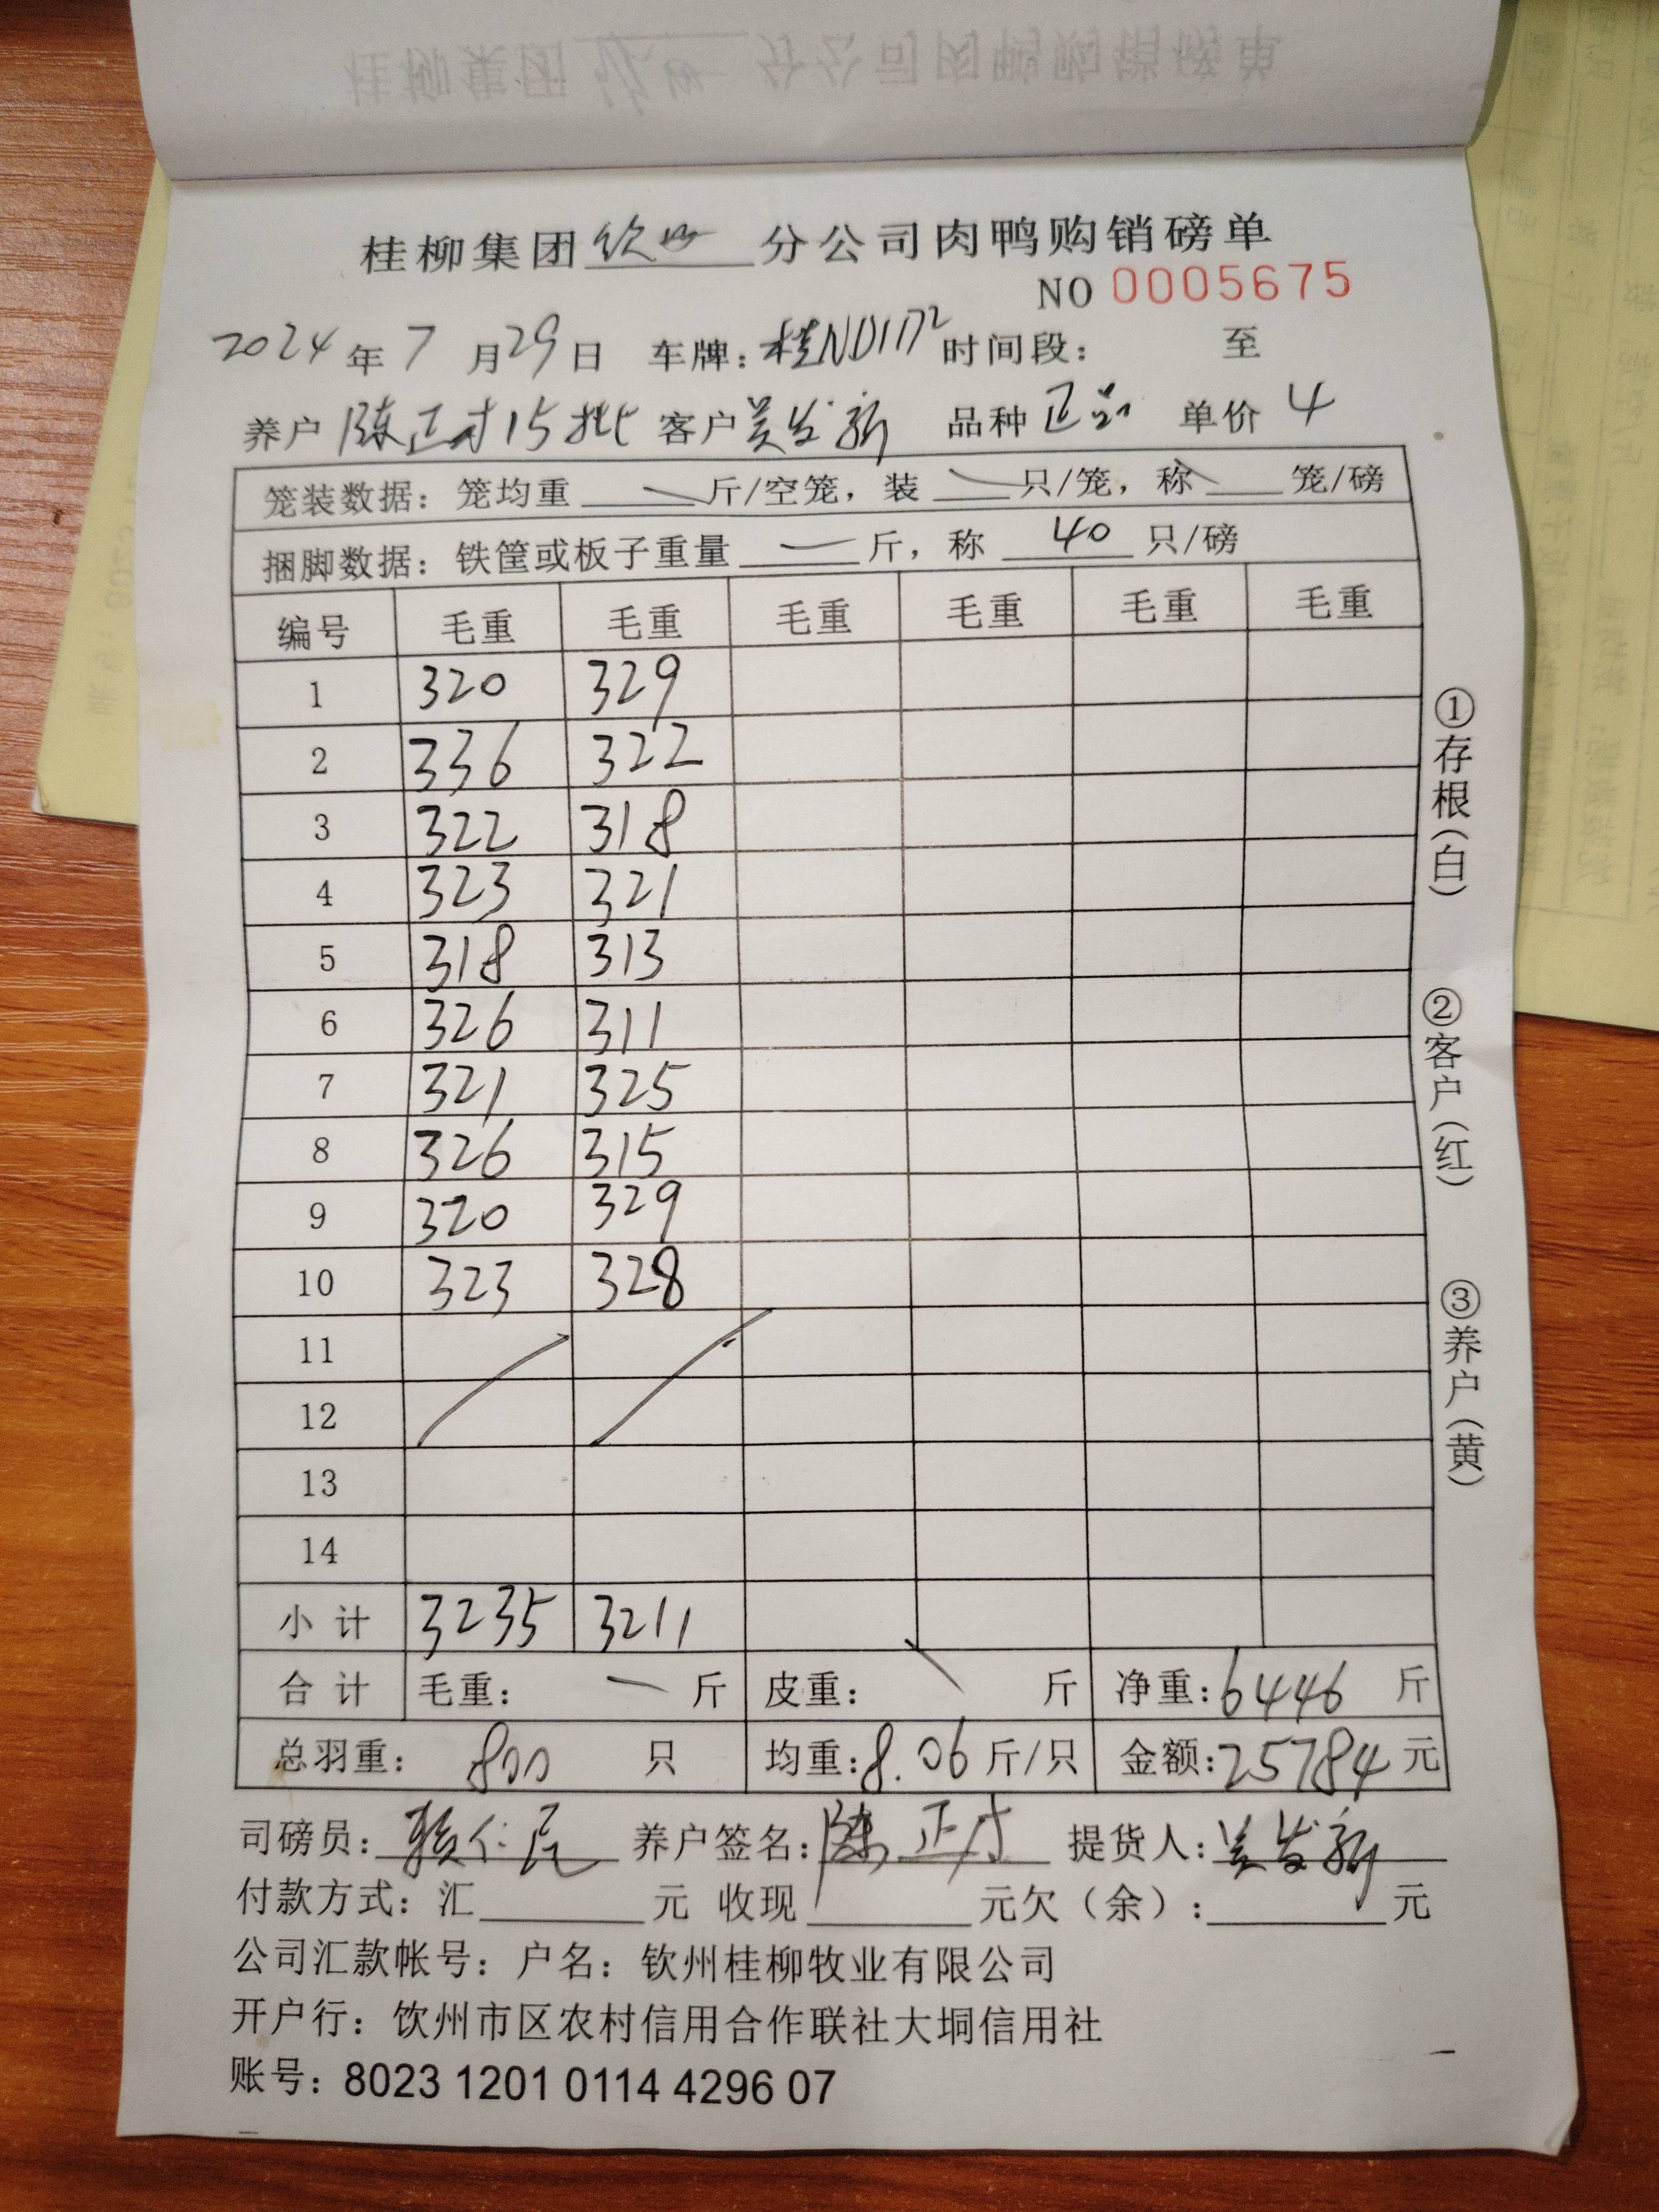 桂柳集团钦州分公司肉鸭购销磅单
NO 0005675
2024年7月29日 车牌:桂ND1172 时间段: 至
养户 陈正才15批 客户 吴发新 品种 正品 单价 4
笼装数据: 笼均重 斤/空笼, 装 只/笼, 称 笼/磅
捆脚数据: 铁筐或板子重量 一 斤, 称 40 只/磅
编号 毛重 毛重 毛重 毛重 毛重 毛重
1 320 329
2 336 322
3 322 318
4 323 321
5 318 313
6 326 311
7 321 325
8 326 315
9 320 329
10 323 328
11
12
13
14
小计 3235 3211
合计 毛重: 一 斤 皮重: 斤 净重:6446 斤
总羽重: 800 只 均重:8.06 斤/只 金额:25784 元
司磅员: 赖仁民 养户签名: 陈正才 提货人: 吴发新
付款方式: 汇 元 收现 元欠(余): 元
公司汇款帐号: 户名: 钦州桂柳牧业有限公司
开户行: 钦州市区农村信用合作联社大垌信用社
账号: 8023 1201 0114 4296 07
①存根(白)
②客户(红)
③养户(黄)